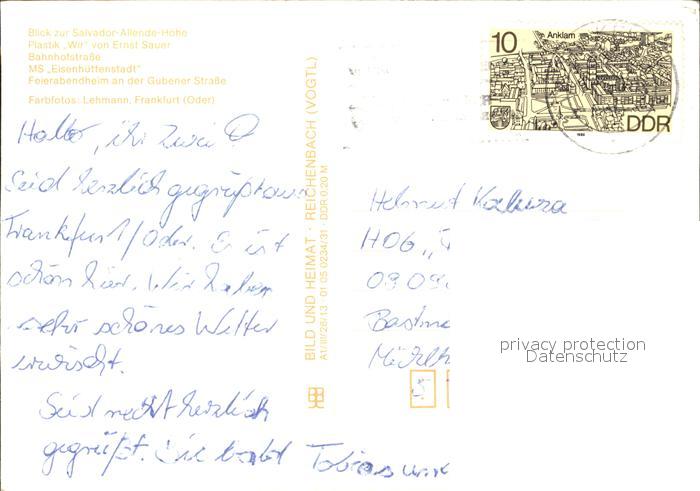 Blick zur Salvador-Allende-Höhe
Plastik „Wir“ von Ernst Sauer
Bahnhofstraße
MS „Eisenhüttenstadt“
Feierabendheim an der Gubener Straße
Farbfotos: Lehmann, Frankfurt (Oder)
Hallo, ihr zwei
Seid herzlich gegrüßt aus
Frankfurt/Oder. Es ist
schön hier. Wir haben
sehr schönes Wetter
erwischt.
Seid recht herzlich
gegrüßt. Tobias und
BILD UND HEIMAT · REICHENBACH (VOGTL)
A1/III/26/13 01 05 0234/31 · DDR 0,20 M
10
Anklam
DDR
Helmut
HOG „
privacy protection
Datenschutz